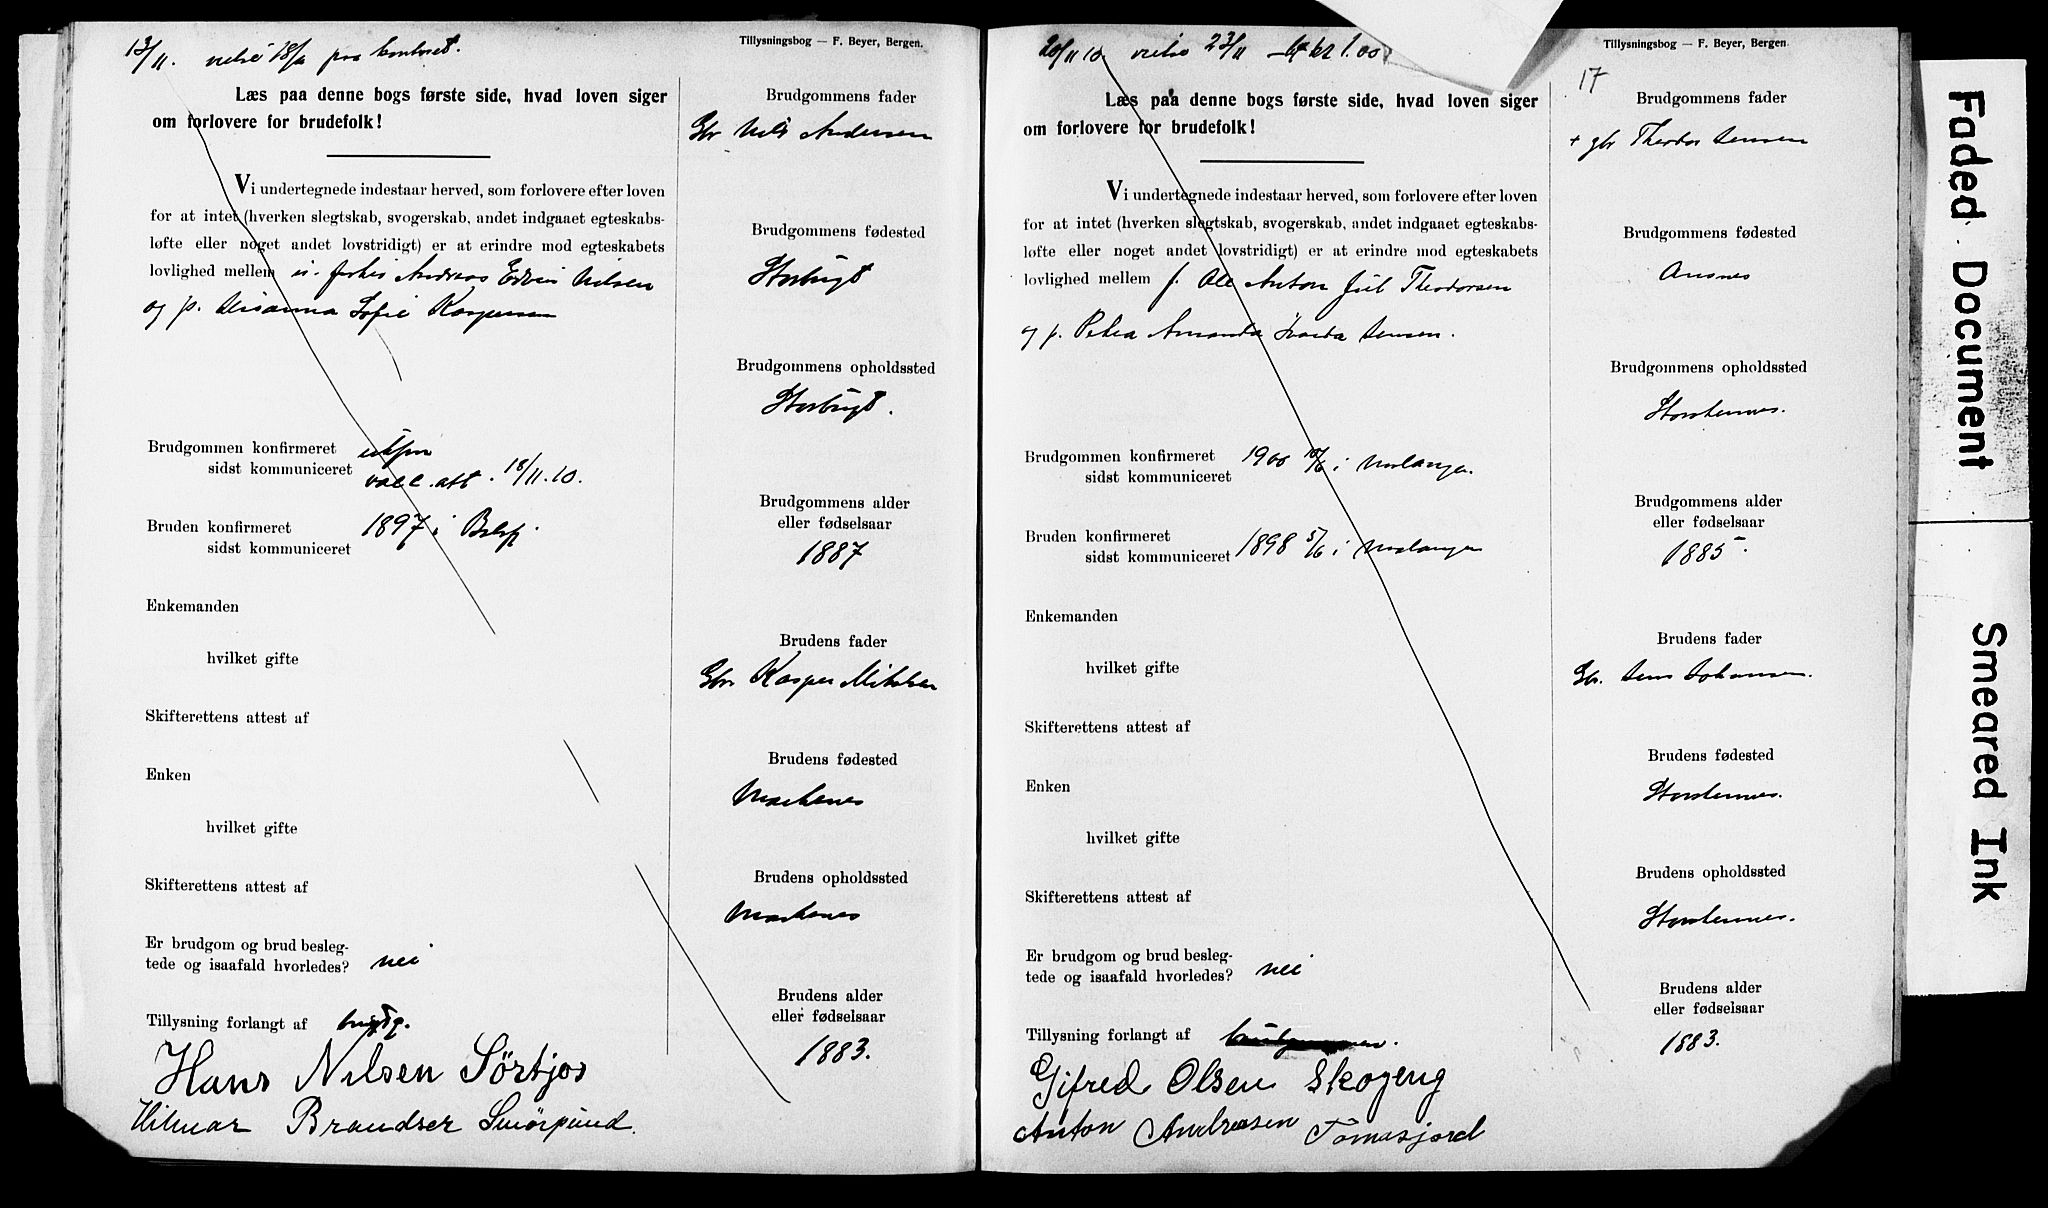 13/11. viet 18/11 paa kontoret.
Tillysningbog — F. Beyer, Bergen.
Læs paa denne bogs første side, hvad loven siger
om forlovere for brudefolk!
Vi undertegnede indestaar herved, som forlovere efter loven
for at intet (hverken slegtskab, svogerskab, andet indgaaet egteskabs-
løfte eller noget andet lovstridigt) er at erindre mod egteskabets
lovlighed mellem Andreas Edvin Nilsen
og p. Susanna Sofie Kaspersen
Brudgommen konfirmeret
sidst kommuniceret vacc. att. 18/11.10.
Bruden konfirmeret 1897 i Balsfj.
sidst kommuniceret
Enkemanden
hvilket gifte
Skifterettens attest af
Enken
hvilket gifte
Skifterettens attest af
Er brudgom og brud besleg-
tede og isaafald hvorledes? nei
Tillysning forlangt af brudg.
Hans Nilsen Sörtjos
Hilmar Brandser Smörpund.
Brudgommens fader
Gbr Nils Andersen
Brudgommens fødested
Storbugt
Brudgommens opholdssted
Storbugt.
Brudgommens alder
eller fødselsaar
1887
Brudens fader
Gbr. Kasper Mikalsen
Brudens fødested
Markenes
Brudens opholdssted
Markenes
Brudens alder
eller fødselsaar
1883.
20/11 10. viet 23/11 kr 1.00
Tillysningbog — F. Beyer, Bergen.
17
Læs paa denne bogs første side, hvad loven siger
om forlovere for brudefolk!
Vi undertegnede indestaar herved, som forlovere efter loven
for at intet (hverken slegtskab, svogerskab, andet indgaaet egteskabs-
løfte eller noget andet lovstridigt) er at erindre mod egteskabets
lovlighed mellem f. Ole Anton Juel Theodorsen
og p. Petra Amanda Hravda Jensen.
Brudgommen konfirmeret 1900 10/6 i Malangen
sidst kommuniceret
Bruden konfirmeret 1898 5/6 i Malangen
sidst kommuniceret
Enkemanden
hvilket gifte
Skifterettens attest af
Enken
hvilket gifte
Skifterettens attest af
Er brudgom og brud besleg-
tede og isaafald hvorledes? nei
Tillysning forlangt af brudgommen.
Gifred Olsen Skogeng
Anton Andreasen Tomasjord
Brudgommens fader
+ gbr Theodor Jensen
Brudgommens fødested
Ansnes
Brudgommens opholdssted
Storstennes.
Brudgommens alder
eller fødselsaar
1885.
Brudens fader
Gbr. Jens Johansen.
Brudens fødested
Storstennes.
Brudens opholdssted
Storstennes.
Brudens alder
eller fødselsaar
1883.
Faded Document
Smeared Ink